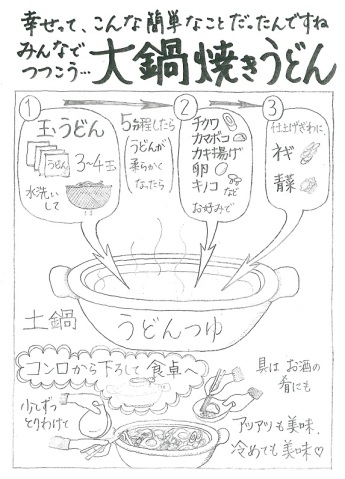 幸せって、こんな簡単なことだったんですね
みんなで
つつこう…
大鍋焼きうどん
①
玉うどん
うどん
3〜4玉
水洗いして
5分程したら
(うどんが
柔らかく
なったら)
②
チクワ
カマボコ
カキ揚げ
卵
キノコ
など
お好みで
③
仕上げぎわに、
ネギ
青菜
土鍋
うどんつゆ
コンロから下ろして食卓へ
少しずつ
とりわけて
具はお酒の
肴にも
アツアツも美味、
冷めても美味♡